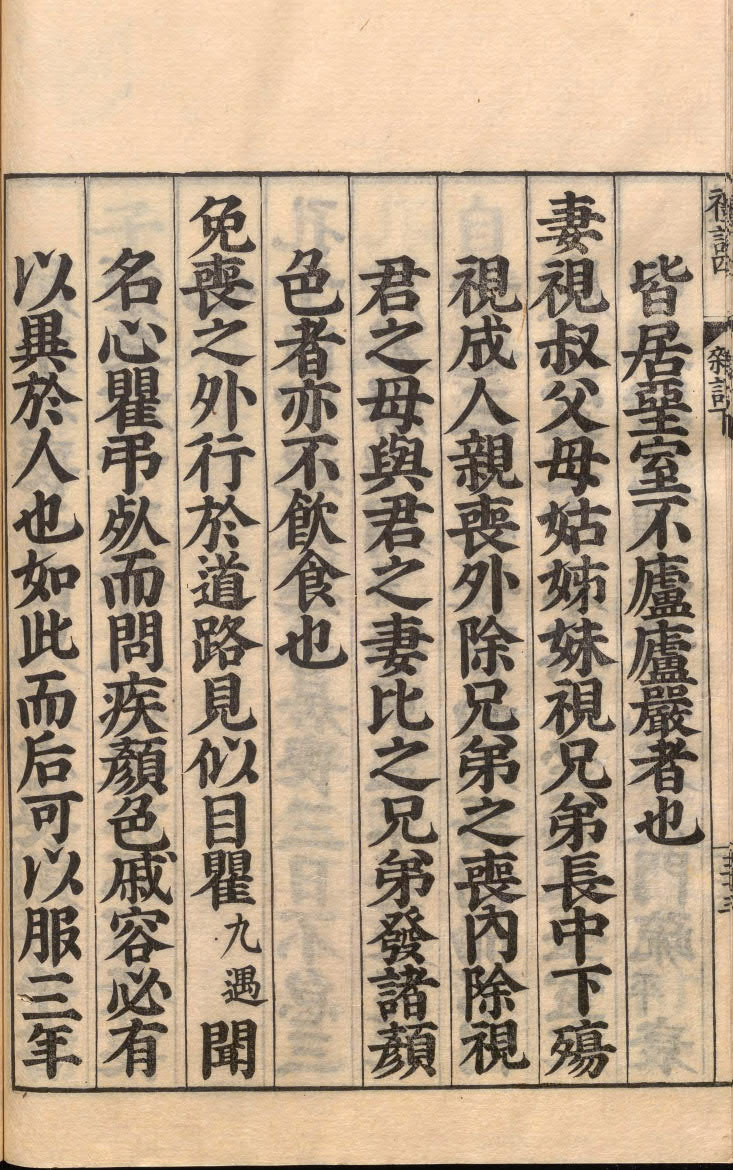 禮記四 雜記下
皆居堊室不廬廬嚴者也
妻視叔父母姑姊妹視兄弟長中下殤
視成人親喪外除兄弟之喪內除視
君之母與君之妻比之兄弟發諸顏
色者亦不飲食也
免喪之外行於道路見似目瞿九遇聞
名心瞿弔𣦸而問疾顏色戚容必有
以異於人也如此而后可以服三年